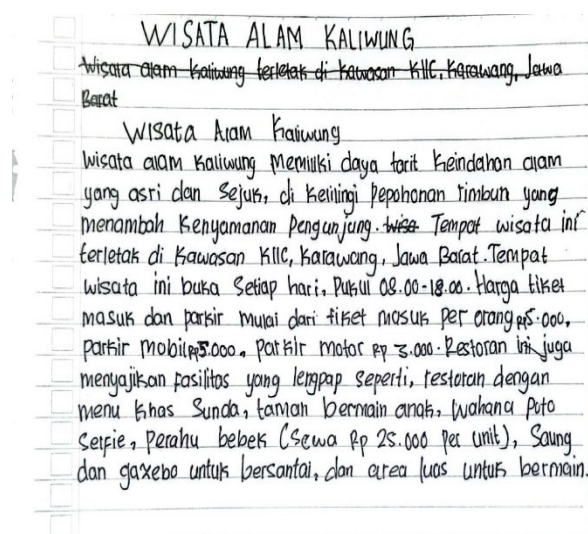 WISATA ALAM KALIWUNG
Wisata alam Kaliwung terletak di kawasan KIIC, Karawang, Jawa
Barat
Wisata Alam Kaliwung
Wisata alam Kaliwung memiliki daya tarik keindahan alam
yang asri dan sejuk, di kelilingi pepohonan rimbun yang
menambah kenyamanan pengunjung. wisa Tempat wisata ini
terletak di kawasan KIIC, Karawang, Jawa Barat. Tempat
wisata ini buka setiap hari, pukul 08.00-18.00. Harga tiket
masuk dan parkir mulai dari tiket masuk per orang Rp5.000,
parkir mobil Rp5.000, parkir motor Rp 3.000. Restoran ini juga
menyajikan pasilitas yang lengpap seperti, restoran dengan
menu khas Sunda, taman bermain anak, wahana poto
selfie, perahu bebek (sewa Rp 25.000 per unit), saung
dan gaxebo untuk bersantai, dan area luas untuk bermain.